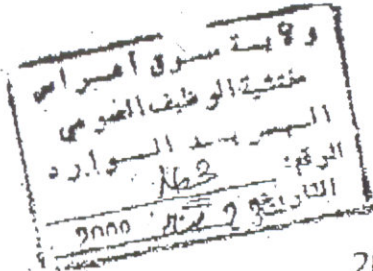 ولاية سوق أهراس
مفتشية الوظيف العمومي
البريد الوارد
الرقم: 163
التاريخ 2000
2